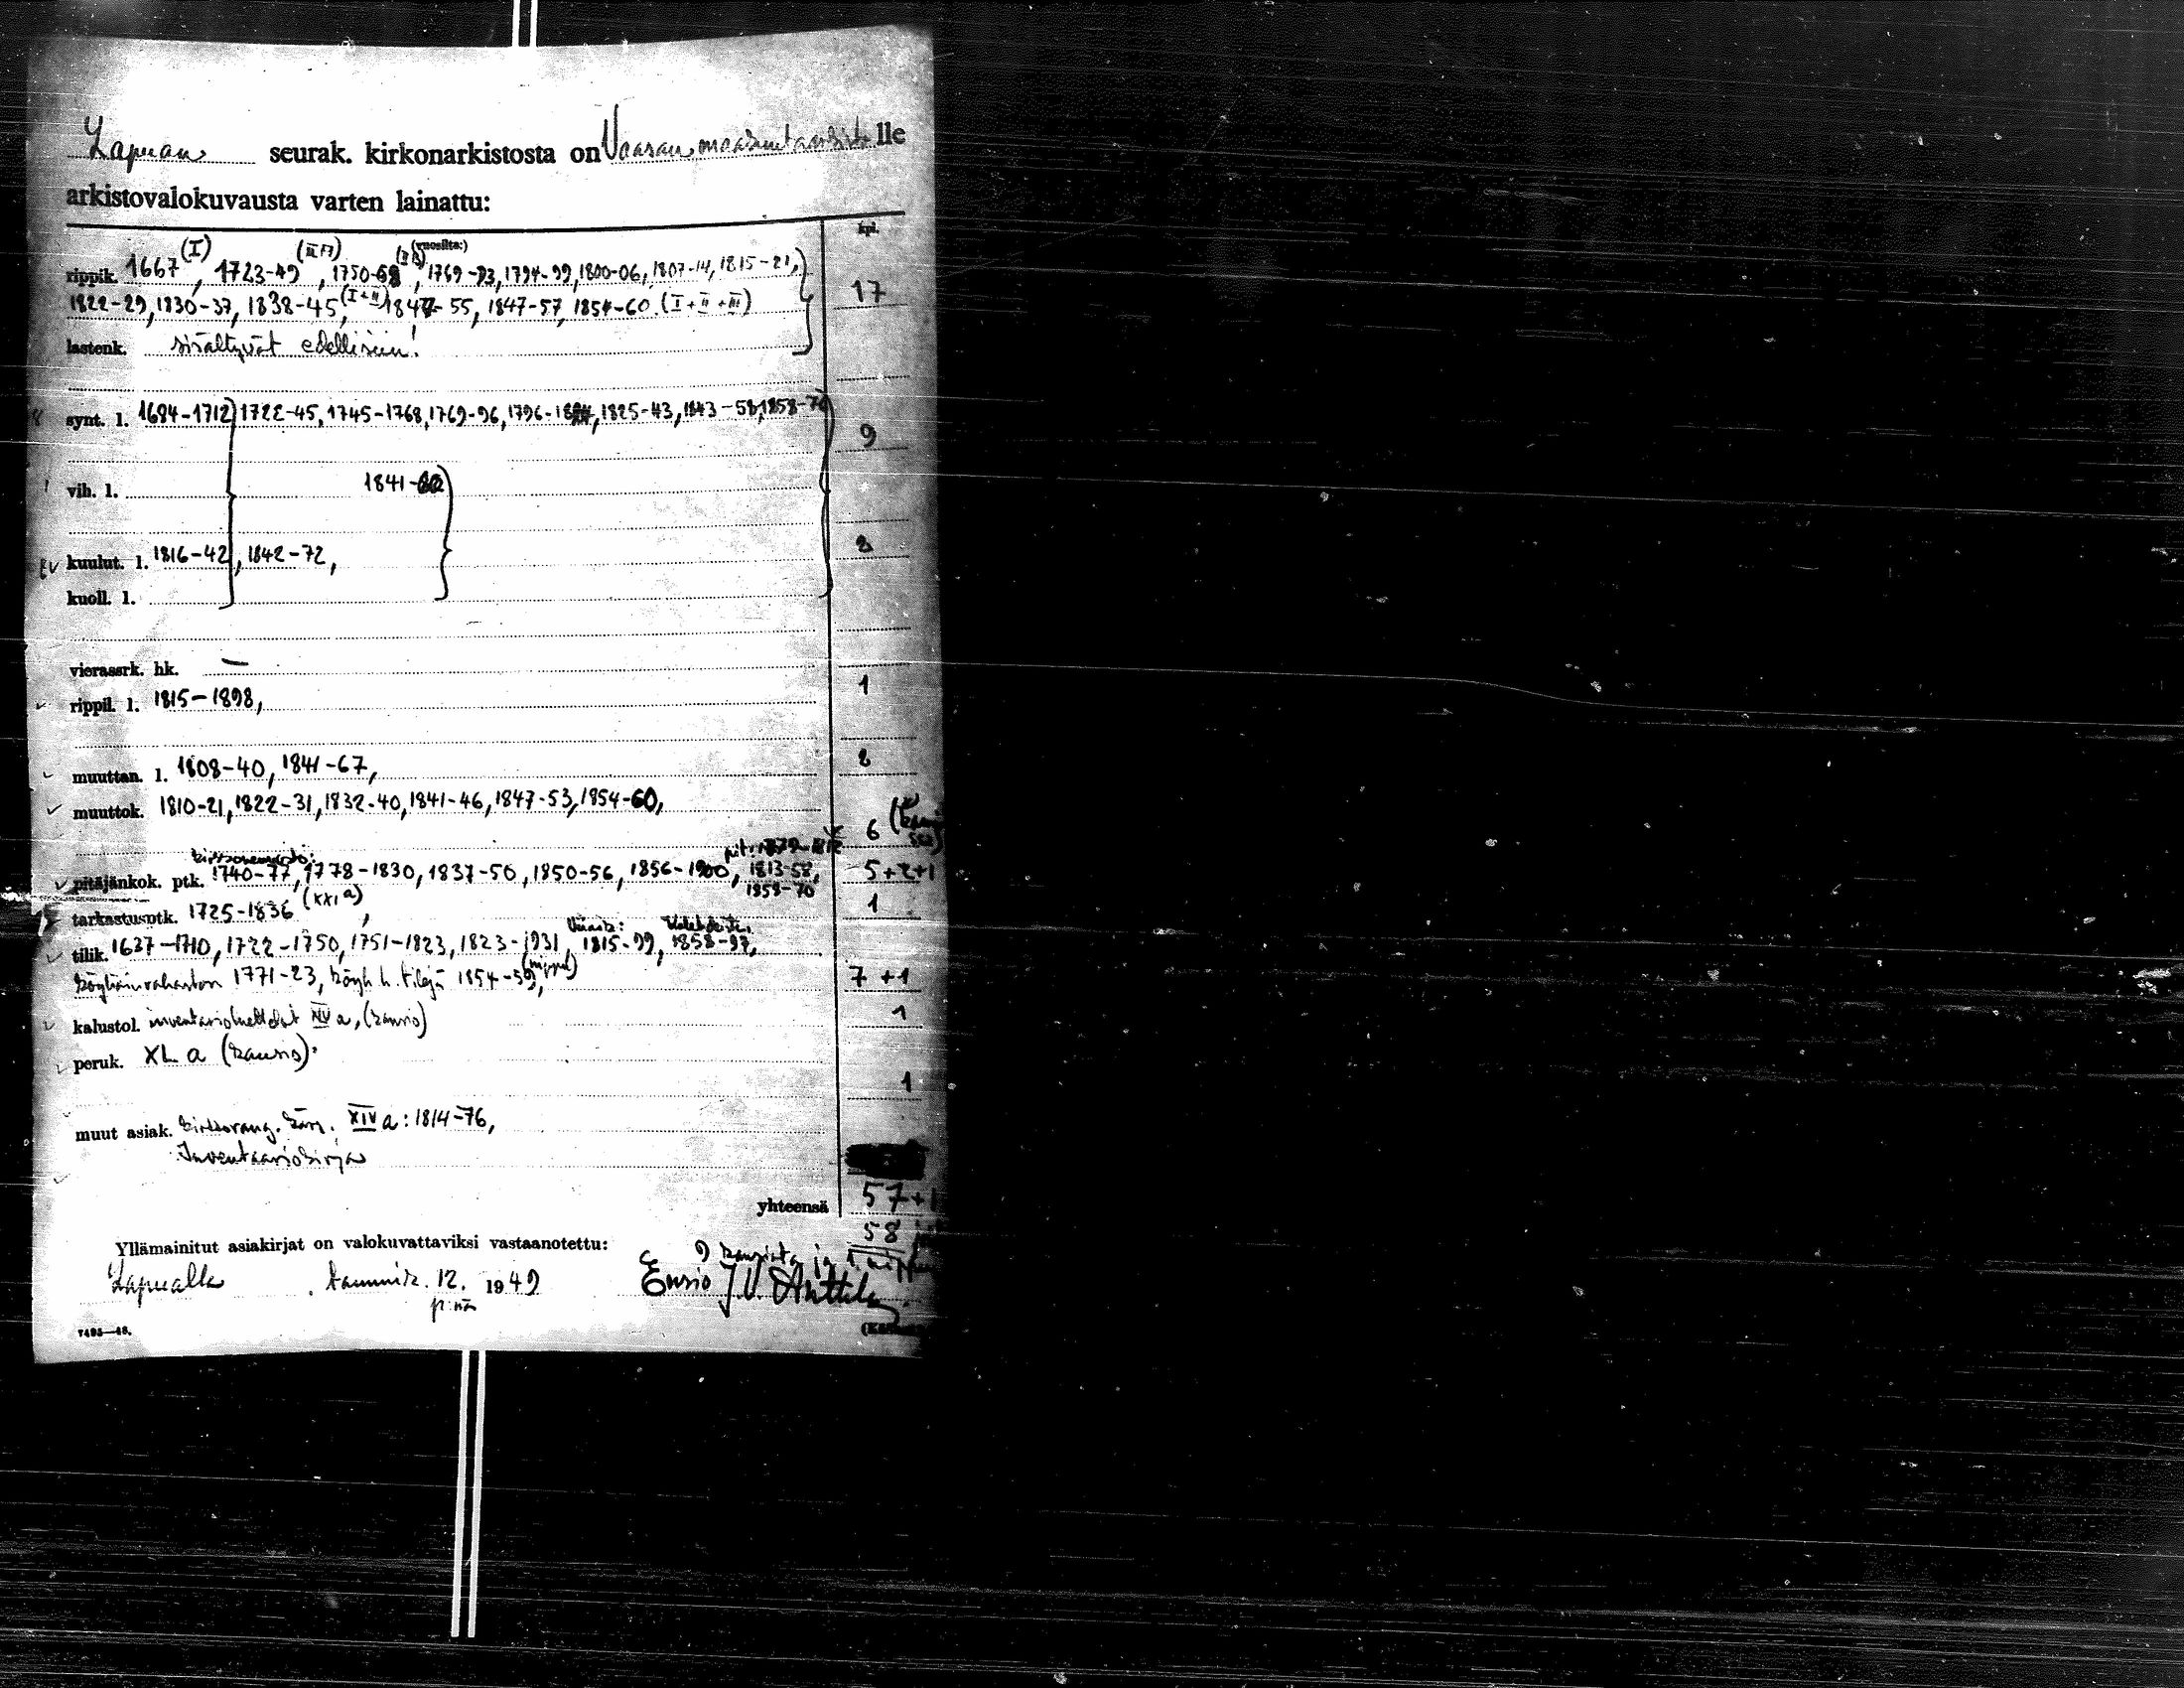 Lapuan seurak. kirkonarkistosta on Vaasan maakunta-arkistolle
arkistovalokuvausta varten lainattu:
kpl.
(vuosilta:)
rippik. 1667 (I), 1723-49, 1750-68, 1769-93, 1794-99, 1800-06, 1807-14, 1815-21,
1822-29, 1830-37, 1838-45, (I+II) 1847-55, 1847-57, 1854-60. (I+II+III) 17
lastenk. sisältyvät edellisiin!
synt. l. 1694-1712, 1722-45, 1745-1768, 1769-96, 1796-, 1825-43, 1843-58, 1858-
9
vih. l. 1841-
kuulut. l. 1816-42, 1842-72, 2
kuoll. l.
vierassrk. hk. — 1
rippil. l. 1815-1898,
muuttan. l. 1808-40, 1841-67, 2
muuttok. 1810-21, 1822-31, 1832-40, 1841-46, 1847-53, 1854-60,
6
pitäjänkok. ptk. 1740-77, 1778-1830, 1837-50, 1850-56, 1856-1900, 1813-58, 5+2+1
1858-70
tarkastusptk. 1725-1836 (XXI a), 1
tilik. 1637-1710, 1722-1750, 1751-1823, 1823-1931, 1815-99, 1858-97,
1771-23, 1854-59, (nippu) 7+1
kalustol. inventarioluettelot XIV a, (kansio) 1
peruk. XL a (kansio).
1
muut asiak. XIV a: 1814-76,
Inventaariokirja
yhteensä 57+1
58
Yllämainitut asiakirjat on valokuvattaviksi vastaanotettu:
9 kansiota ja 1 nippu
Lapualla, tammik. 12. 1949 Ensio J. V. Anttila
p:nä
7495—48.